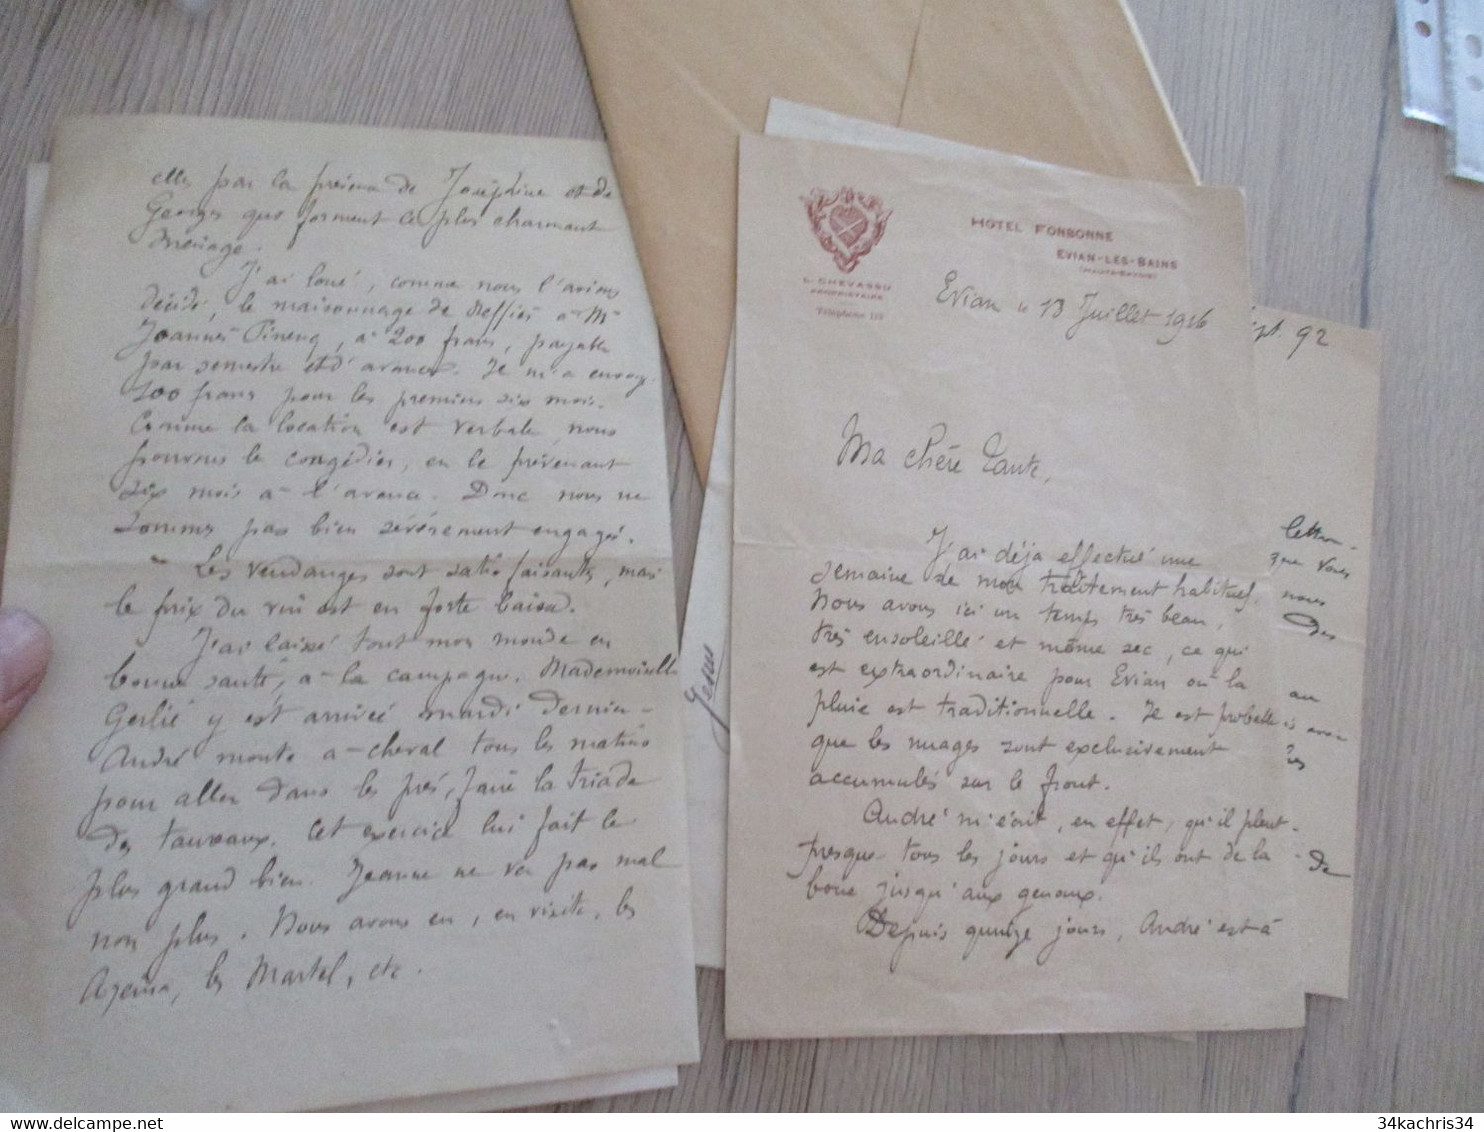 elles par la présence de Joséphine et de
Georges qui forment le plus charmant
ménage.
J'ai loué, comme nous l'avions
décidé, le maisonnage de Neffiès à Mr
Joannès Pineng, à 200 francs, payables
par semestre et d'avance. Je m'a envoyé
100 francs pour les premiers six mois.
Comme la location est verbale, nous
pouvons le congédier, en le prévenant
six mois à l'avance. Donc nous ne
sommes pas bien sévèrement engagés.
Les vendanges sont satisfaisantes, mais
le prix du vin est en forte baisse.
J'ai laissé tout mon monde en
bonne santé, à la campagne. Mademoiselle
Gerlié y est arrivée mardi dernier.
André monte à cheval tous les matins
pour aller dans les prés, faire la triade
des taureaux. Cet exercice lui fait le
plus grand bien. Jeanne ne va pas mal
non plus. Nous avons eu, en visite, les
Azéma, les Martel, etc.
HOTEL FONBONNE
EVIAN-LES-BAINS
(HAUTE-SAVOIE)
L. CHEVASSU
PROPRIETAIRE
Téléphone
Evian le 13 Juillet 1916
Ma chère Tante,
J'ai déjà effectué une
semaine de mon traitement habituel.
Nous avons ici un temps très beau,
très ensoleillé et même sec, ce qui
est extraordinaire pour Evian où la
pluie est traditionnelle. Il est probable
que les nuages sont exclusivement
accumulés sur le front.
André m'écrit, en effet, qu'il pleut
presque tous les jours et qu'ils ont de la
boue jusqu'aux genoux.
Depuis quinze jours, André est à
Sept. 92
que vous
nous
des
au
de
34kachris34